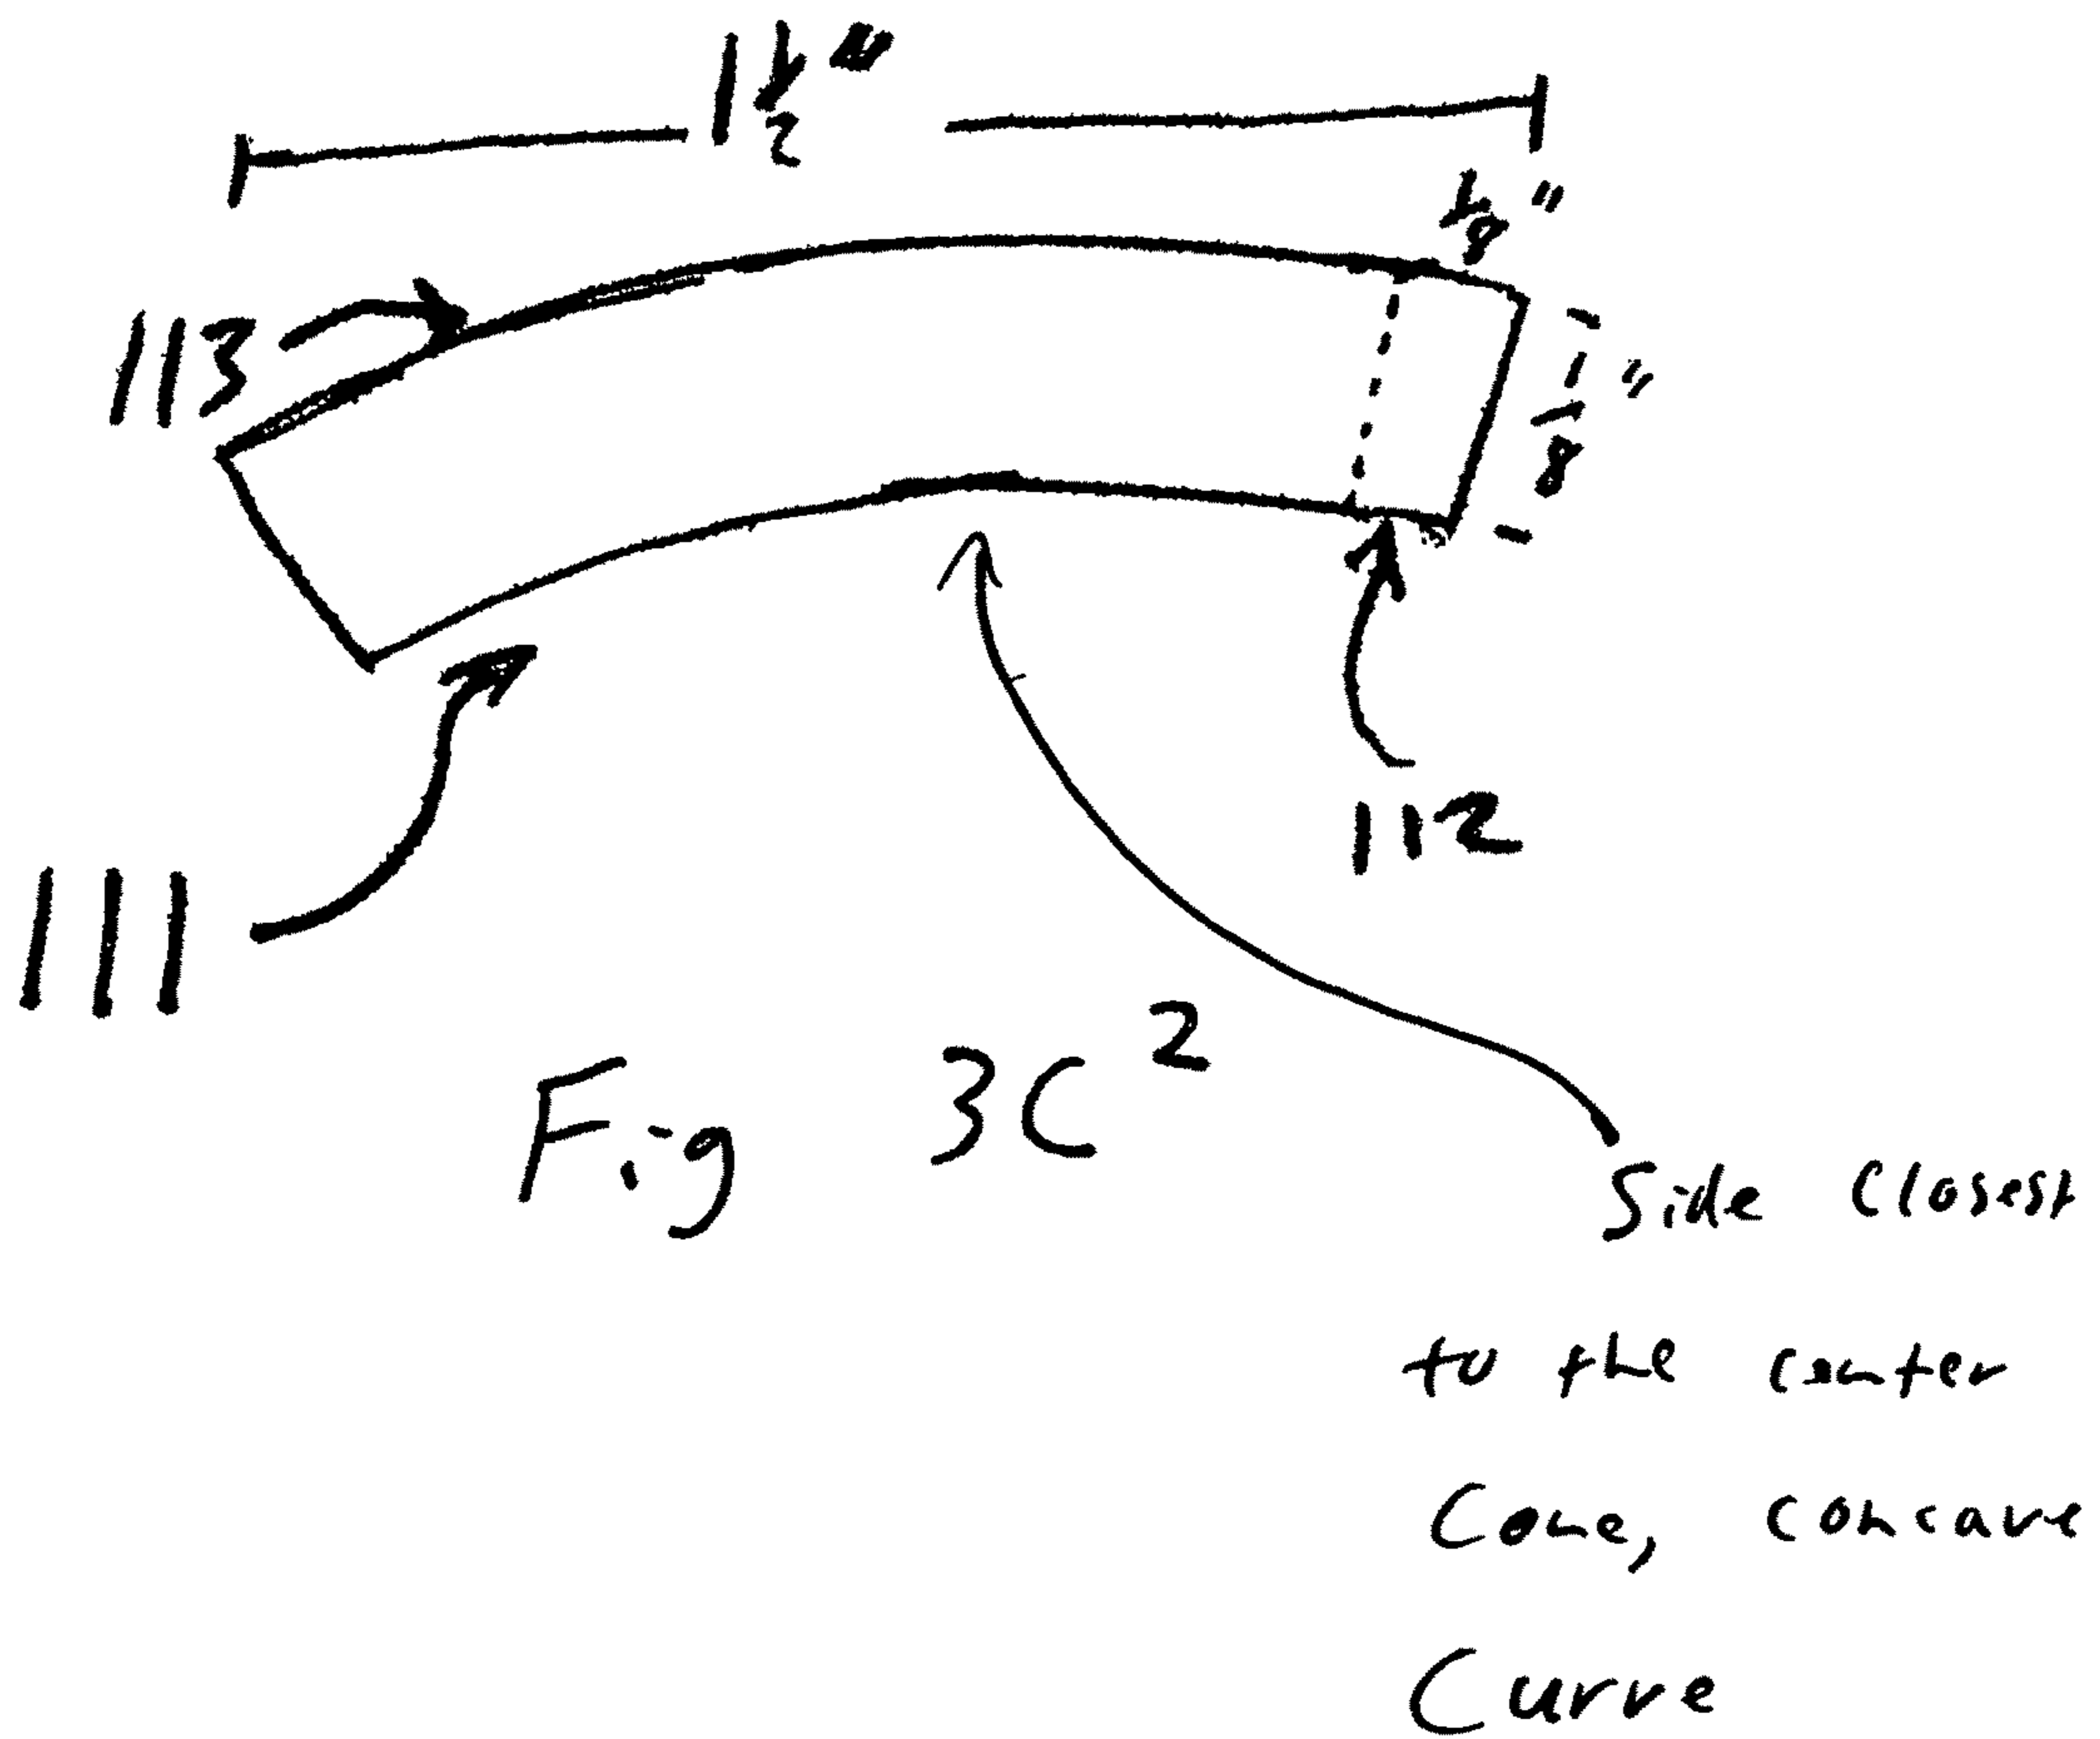 1 1/2"
1/8"
113
1/8"
112
111
Fig 3C²
Side Closest
to the center
Cone, concave
Curve